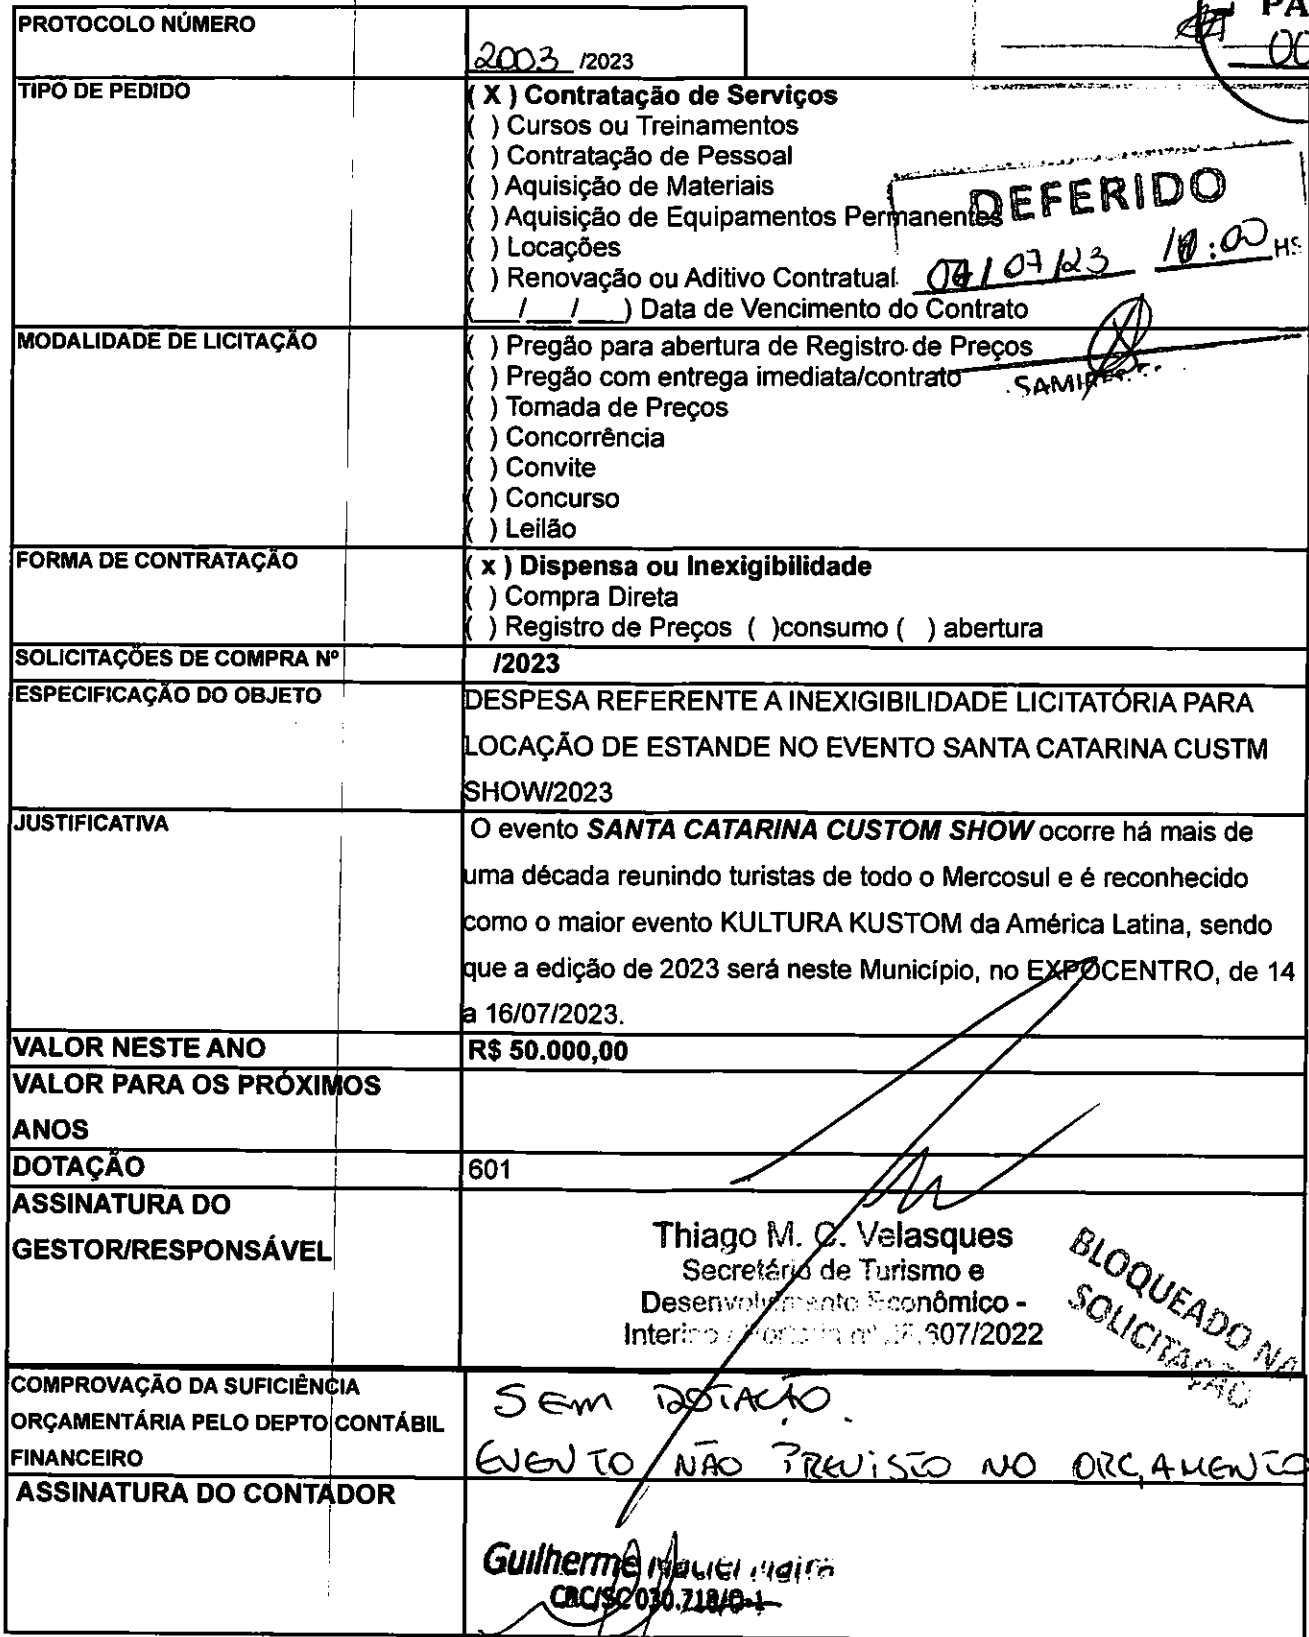 PROTOCOLO NÚMERO
2003 /2023
PA
00
TIPO DE PEDIDO
( X ) Contratação de Serviços
( ) Cursos ou Treinamentos
( ) Contratação de Pessoal
( ) Aquisição de Materiais
( ) Aquisição de Equipamentos Permanentes
( ) Locações
( ) Renovação ou Aditivo Contratual
(___/___/___) Data de Vencimento do Contrato
DEFERIDO
/07/23 :00 HS
MODALIDADE DE LICITAÇÃO
( ) Pregão para abertura de Registro de Preços
( ) Pregão com entrega imediata/contrato
( ) Tomada de Preços
( ) Concorrência
( ) Convite
( ) Concurso
( ) Leilão
FORMA DE CONTRATAÇÃO
( x ) Dispensa ou Inexigibilidade
( ) Compra Direta
( ) Registro de Preços ( )consumo ( ) abertura
SOLICITAÇÕES DE COMPRA Nº
/2023
ESPECIFICAÇÃO DO OBJETO
DESPESA REFERENTE A INEXIGIBILIDADE LICITATÓRIA PARA
LOCAÇÃO DE ESTANDE NO EVENTO SANTA CATARINA CUSTM
SHOW/2023
JUSTIFICATIVA
O evento SANTA CATARINA CUSTOM SHOW ocorre há mais de
uma década reunindo turistas de todo o Mercosul e é reconhecido
como o maior evento KULTURA KUSTOM da América Latina, sendo
que a edição de 2023 será neste Município, no EXPOCENTRO, de 14
a 16/07/2023.
VALOR NESTE ANO
R$ 50.000,00
VALOR PARA OS PRÓXIMOS
ANOS
DOTAÇÃO
601
ASSINATURA DO
GESTOR/RESPONSÁVEL
Thiago M. C. Velasques
Secretário de Turismo e
Desenvolvimento Econômico -
Interino / Portaria nº 607/2022
BLOQUEADO NA
SOLICITAÇÃO
COMPROVAÇÃO DA SUFICIÊNCIA
ORÇAMENTÁRIA PELO DEPTO CONTÁBIL
FINANCEIRO
SEM DOTAÇÃO.
EVENTO NÃO PREVISTO NO ORÇAMENTO
ASSINATURA DO CONTADOR
Guilherme
CRC/SC 030.718/O-1